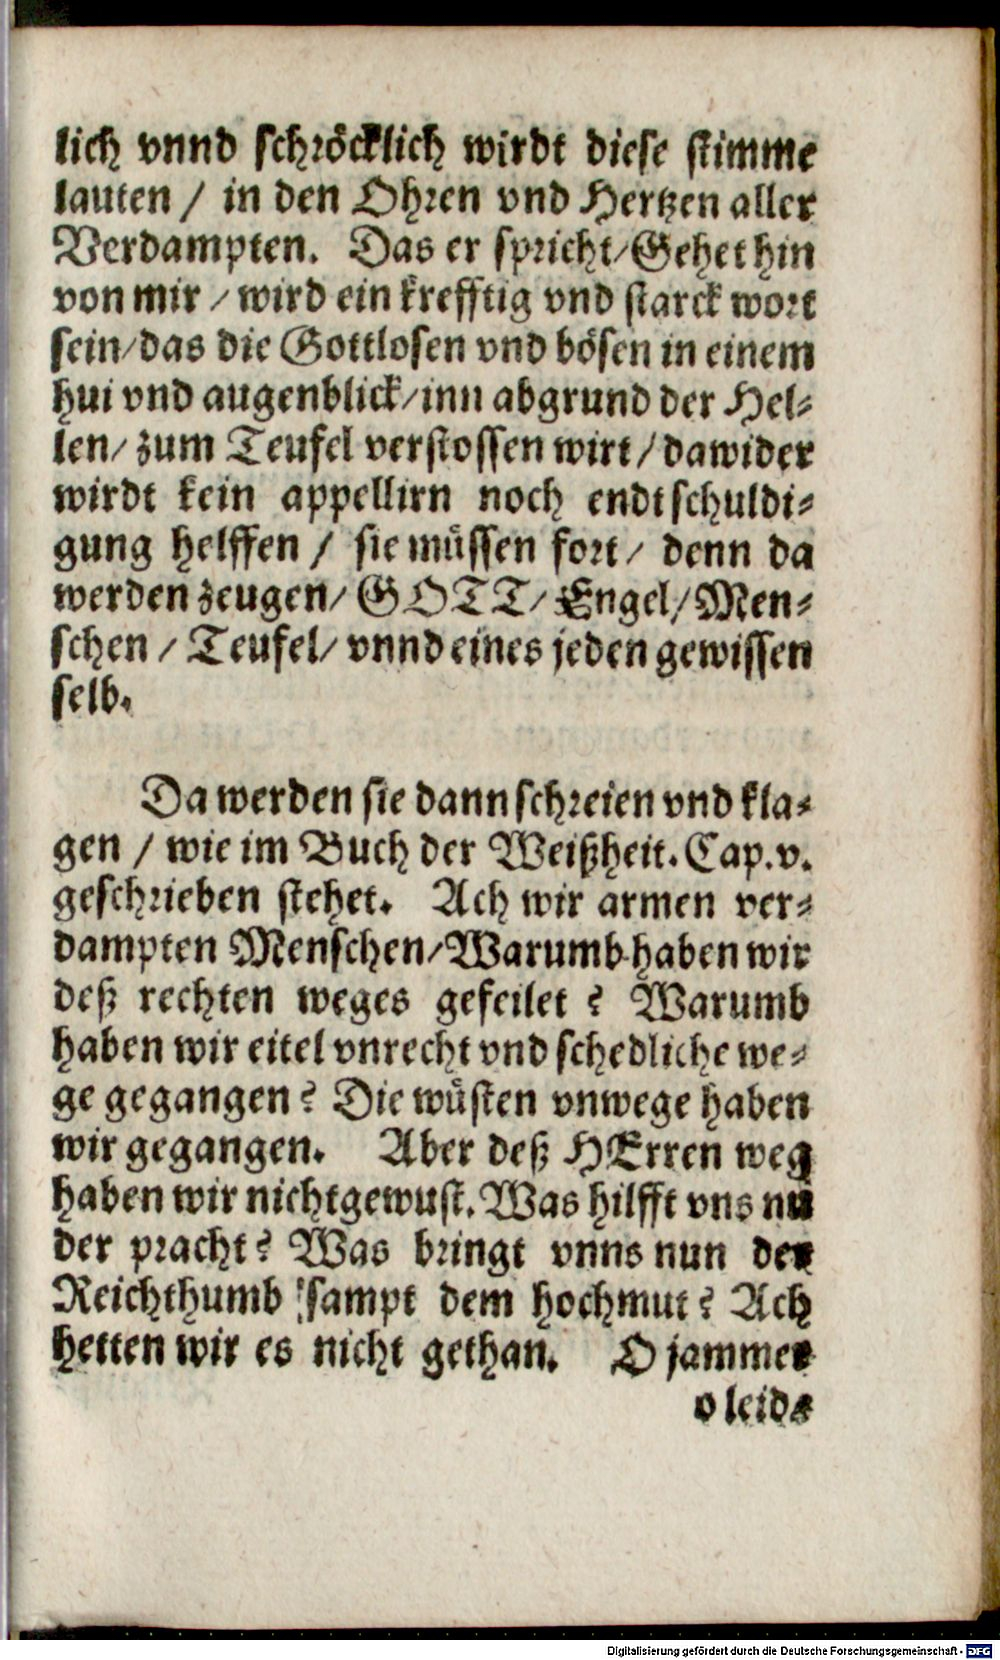 lich vnnd schröcklich wirdt diese stimme
lauten / in den Ohren vnd Hertzen aller
Verdampten. Das er spricht/Gehet hin
von mir / wird ein krefftig vnd starck wort
sein/das die Gottlosen vnd bösen in einem
hui vnd augenblick/inn abgrund der Hel-
len/ zum Teufel verstossen wirt / dawider
wirdt kein appellirn noch endtschuldi-
gung helffen / sie müssen fort/ denn da
werden zeugen/ GOTT/ Engel/Men-
schen / Teufel/ vnnd eines jeden gewissen
selb.
Da werden sie dann schreien vnd kla-
gen / wie im Buch der Weißheit. Cap. v.
geschrieben stehet. Ach wir armen ver-
dampten Menschen/Warumb haben wir
deß rechten weges gefeilet? Warumb
haben wir eitel vnrecht vnd schedliche we-
ge gegangen? Die wüsten vnwege haben
wir gegangen. Aber deß HErren weg
haben wir nicht gewust. Was hilfft vns nu
der pracht? Was bringt vnns nun der
Reichthumb sampt dem hochmut? Ach
hetten wir es nicht gethan. O jammer
o leid
Digitalisierung gefördert durch die Deutsche Forschungsgemeinschaft - DFG